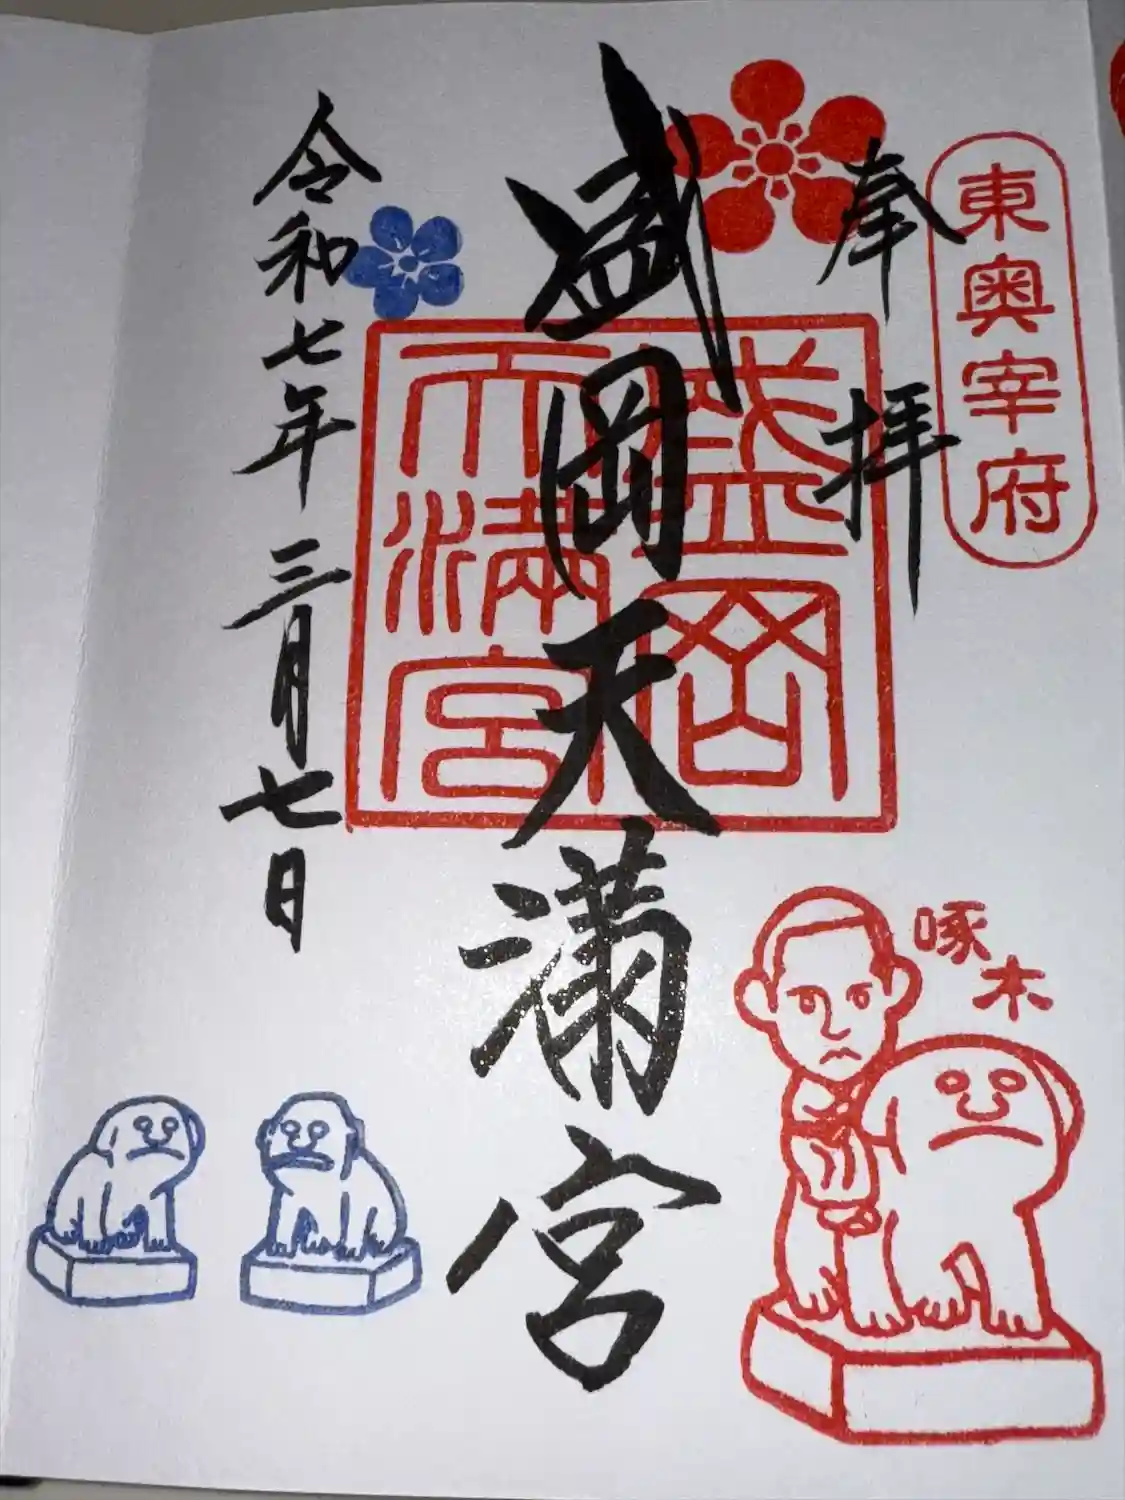 東奥宰府
奉拝
盛岡天満宮
盛岡
天満宮
令和七年三月七日
啄木